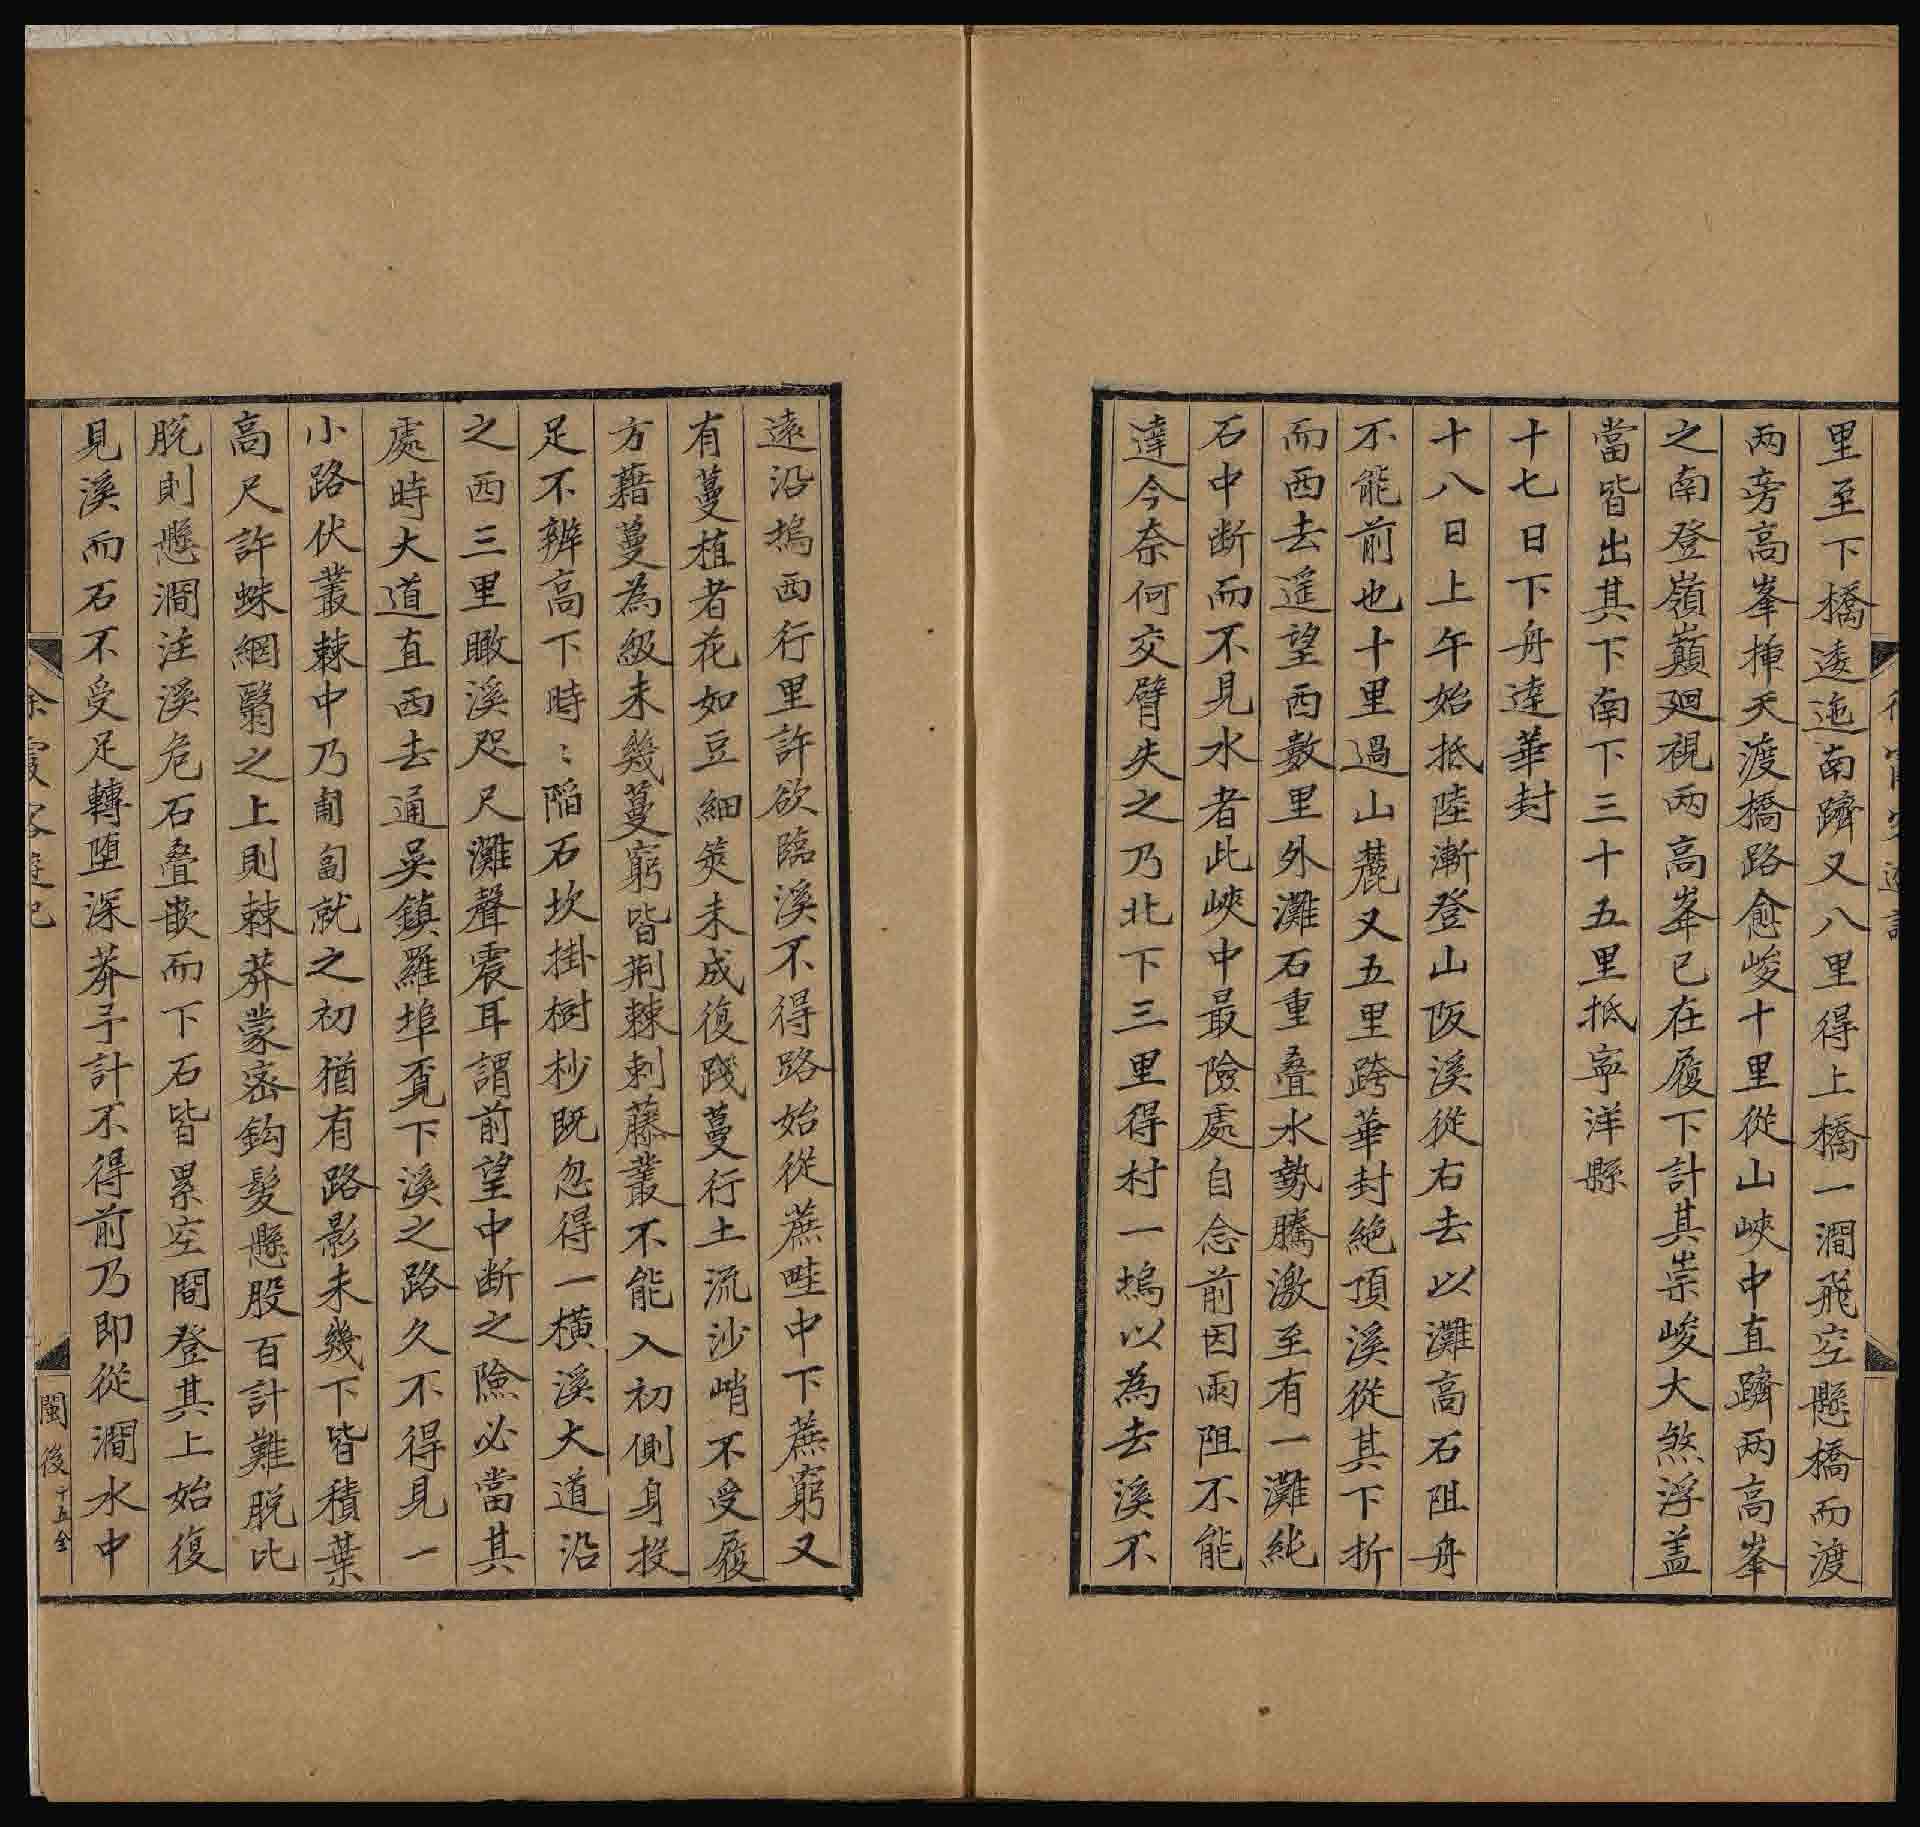 里至下橋逶迤南躋又八里得上橋一澗飛空懸橋而渡
兩旁高峯揷天渡橋路愈峻十里從山峽中直躋兩高峯
之南登嶺巔廻視兩高峯已在履下計其崇峻大煞浮蓋
當皆出其下南下三十五里抵寧洋縣
十七日下舟達華封
十八日上午始抵陸漸登山阪溪從右去以灘高石阻舟
不能前也十里過山麓又五里跨華封絶頂溪從其下折
而西去遥望西數里外灘石重疊水勢騰激至有一灘純
石中斷而不見水者此峽中最險處自念前因雨阻不能
達今奈何交臂失之乃北下三里得村一塢以為去溪不
遠沿塢西行里許欲臨溪不得路始從蔗畦中下蔗窮又
有蔓植者花如豆細莢未成復踐蔓行土流沙峭不受履
方藉蔓為級未幾蔓窮皆荆棘刺藤叢不能入初側身投
足不辨高下時〻陷石坎掛樹杪既忽得一橫溪大道沿
之西三里瞰溪咫尺灘聲震耳謂前望中斷之險必當其
處時大道直西去通吳鎮羅埠覔下溪之路久不得見一
小路伏叢棘中乃匍匐就之初猶有路影未幾下皆積葉
高尺許蛛網翳之上則棘莽蒙密鈎髮懸股百計難脫比
脫則懸澗注溪危石疊嵌而下石皆累空間登其上始復
見溪而石不受足轉墮深莽予計不得前乃即從澗水中
徐霞客遊記
閩後